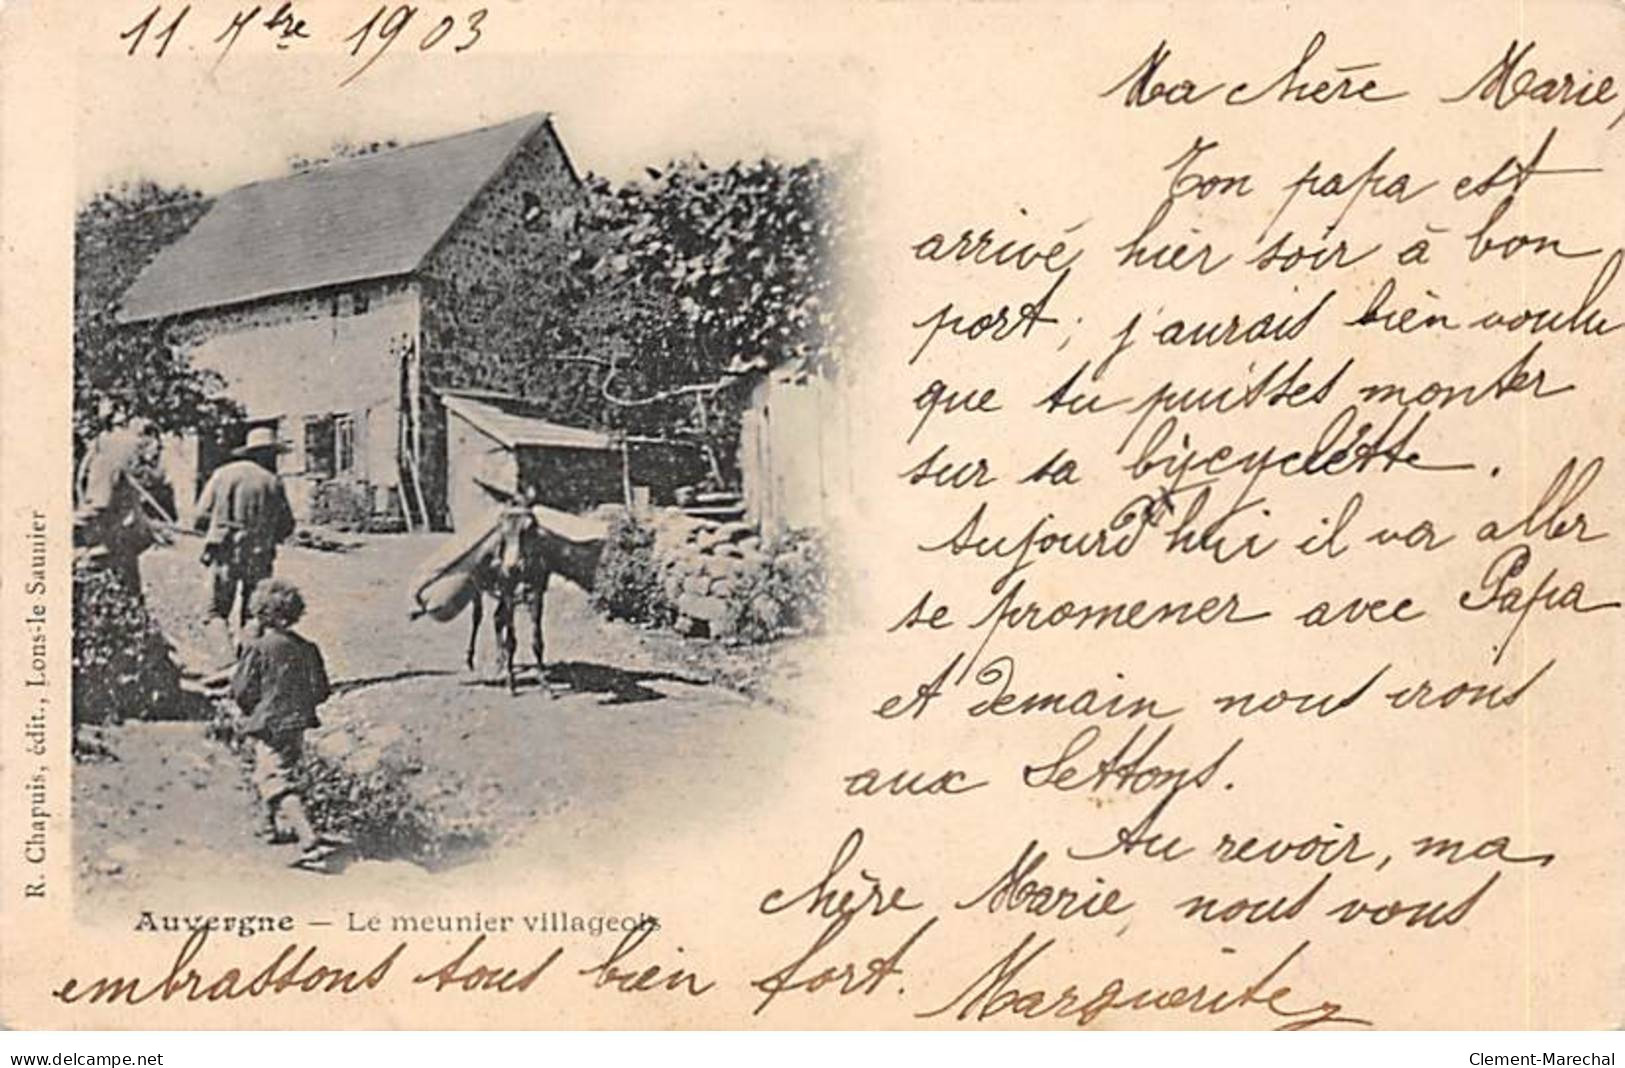 11 7bre 1903
Ma chère Marie,
Ton papa est
arrivé hier soir à bon
port; j'aurais bien voulu
que tu puisses monter
sur sa bicyclètte.
Aujourd'hui il va aller
se promener avec Papa
et demain nous irons
aux Settons.
Au revoir, ma
chère Marie, nous vous
embrassons tous bien fort. Marguerite
Auvergne — Le meunier villageois
R. Chapuis, édit., Lons-le Saunier
www.delcampe.net
Clement-Marechal